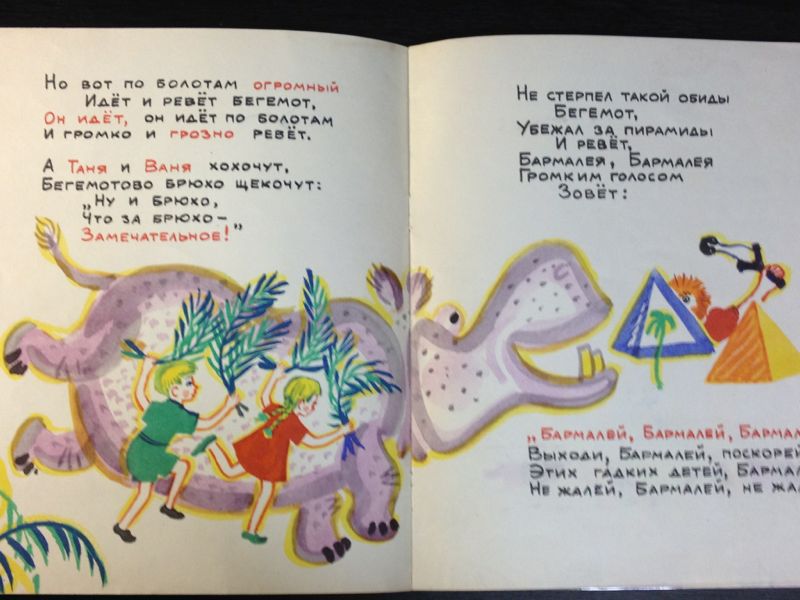 Но вот по болотам огромный
Идёт и ревёт Бегемот,
Он идёт, он идёт по болотам
И громко и грозно ревёт.
А Таня и Ваня хохочут,
Бегемотово брюхо щекочут:
„Ну и брюхо,
Что за брюхо—
Замечательное!"
Не стерпел такой обиды
Бегемот,
Убежал за пирамиды
И ревёт,
Бармалея, Бармалея
Громким голосом
Зовёт:
„Бармалей, Бармалей,
Выходи, Бармалей, поскорей
Этих гадких детей,
Не жалей, Бармалей, не